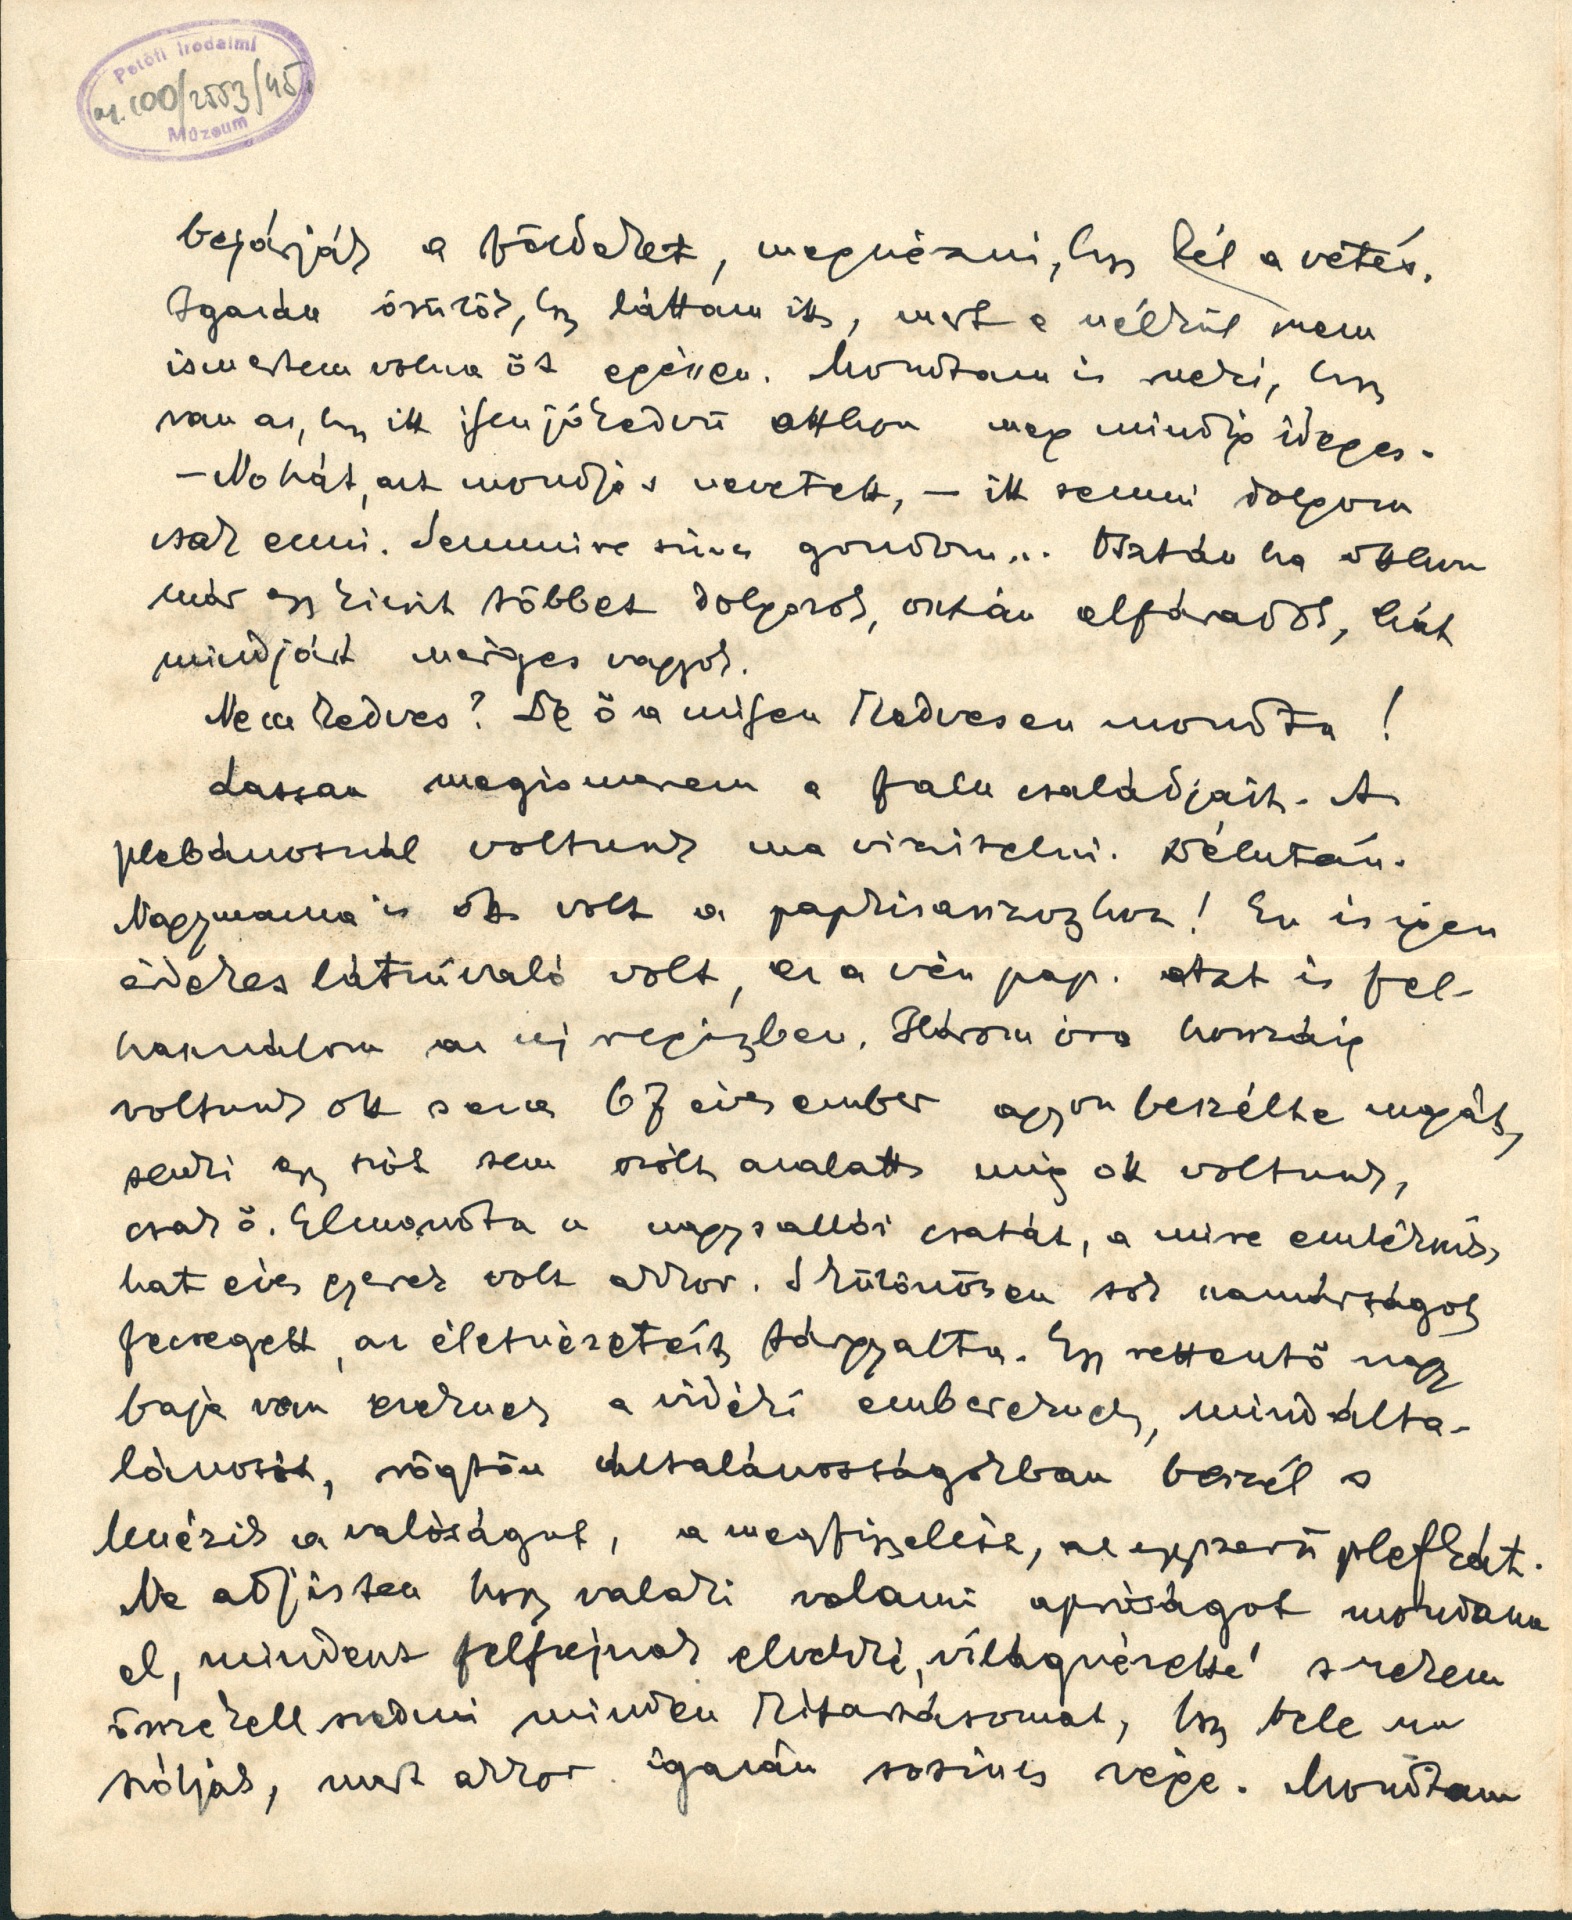 Petőfi Irodalmi
100/2553/45
Múzeum
bejárják a földeket, megnézni, hogy kél a vetés.
Igazán örülök, hogy láttam itt, mert e nélkül nem
ismertem volna őt egészen. Mondtam is neki, hogy
van az, hogy itt ilyen jókedvű otthon meg mindig ideges.
– No hát, azt mondja s nevetett, – itt semmi dolgom
csak enni. Semmire sincs gondom... Osztán ha otthon
már egy kicsit többet dolgozok, osztán elfáradok, hát
mindjárt mérges vagyok.
Nem kedves? De ő a milyen kedvesen mondta!
Lassan megismerem a falu családjait. A
plebánosnál voltunk ma vizitelni. Délután.
Nagymama is ott volt a paprikásszoszhoz! Ez is igen
érdekes látnivaló volt, ez a vén pap. Azt is fel-
használom az uj regényben. Három óra hosszáig
voltunk ott s ez a 67 éves ember agyon beszélte magát,
senki egy szót sem szólt azalatt míg ott voltunk,
csak ő. Elmondta a nagysallói csatát, a mire emlékszik,
hat éves gyerek volt akkor. S különösen sok szamárságot
fecsegett, az életnézeteit tárgyalta. Egy rettentő nagy
baja van ezeknek a vidéki embereknek, mind álta-
lánosít, rögtön általánosságokban beszél s
lenézik a valóságot, a megfigyelést, az egyszerű plefkát.
Ne adj isten hogy valaki valami apróságot mondana
el, mindent felfujnak elvekké, világnézetté s nekem
össze kell szedni minden kitartásomat, hogy bele ne
szóljak, mert akkor igazán sosincs vége. Mondtam